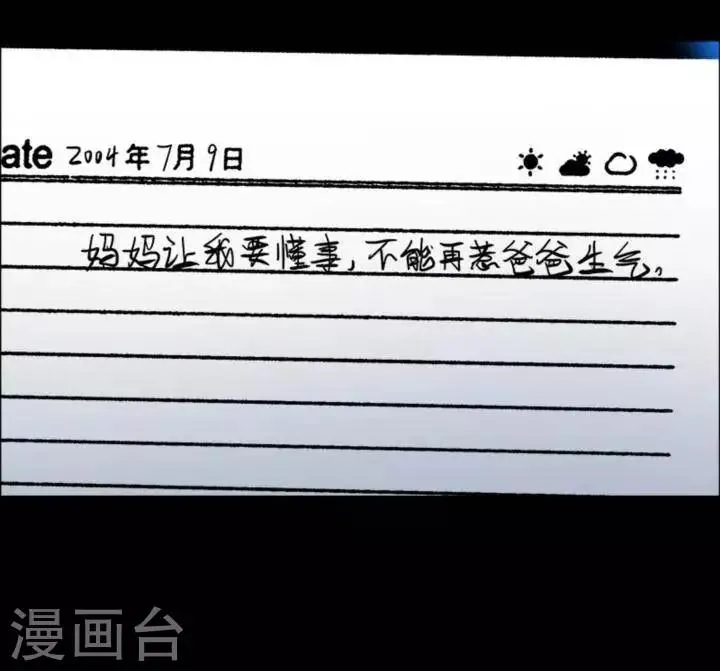 ate 2004年7月9日
妈妈让我要懂事,不能再惹爸爸生气。
漫画台